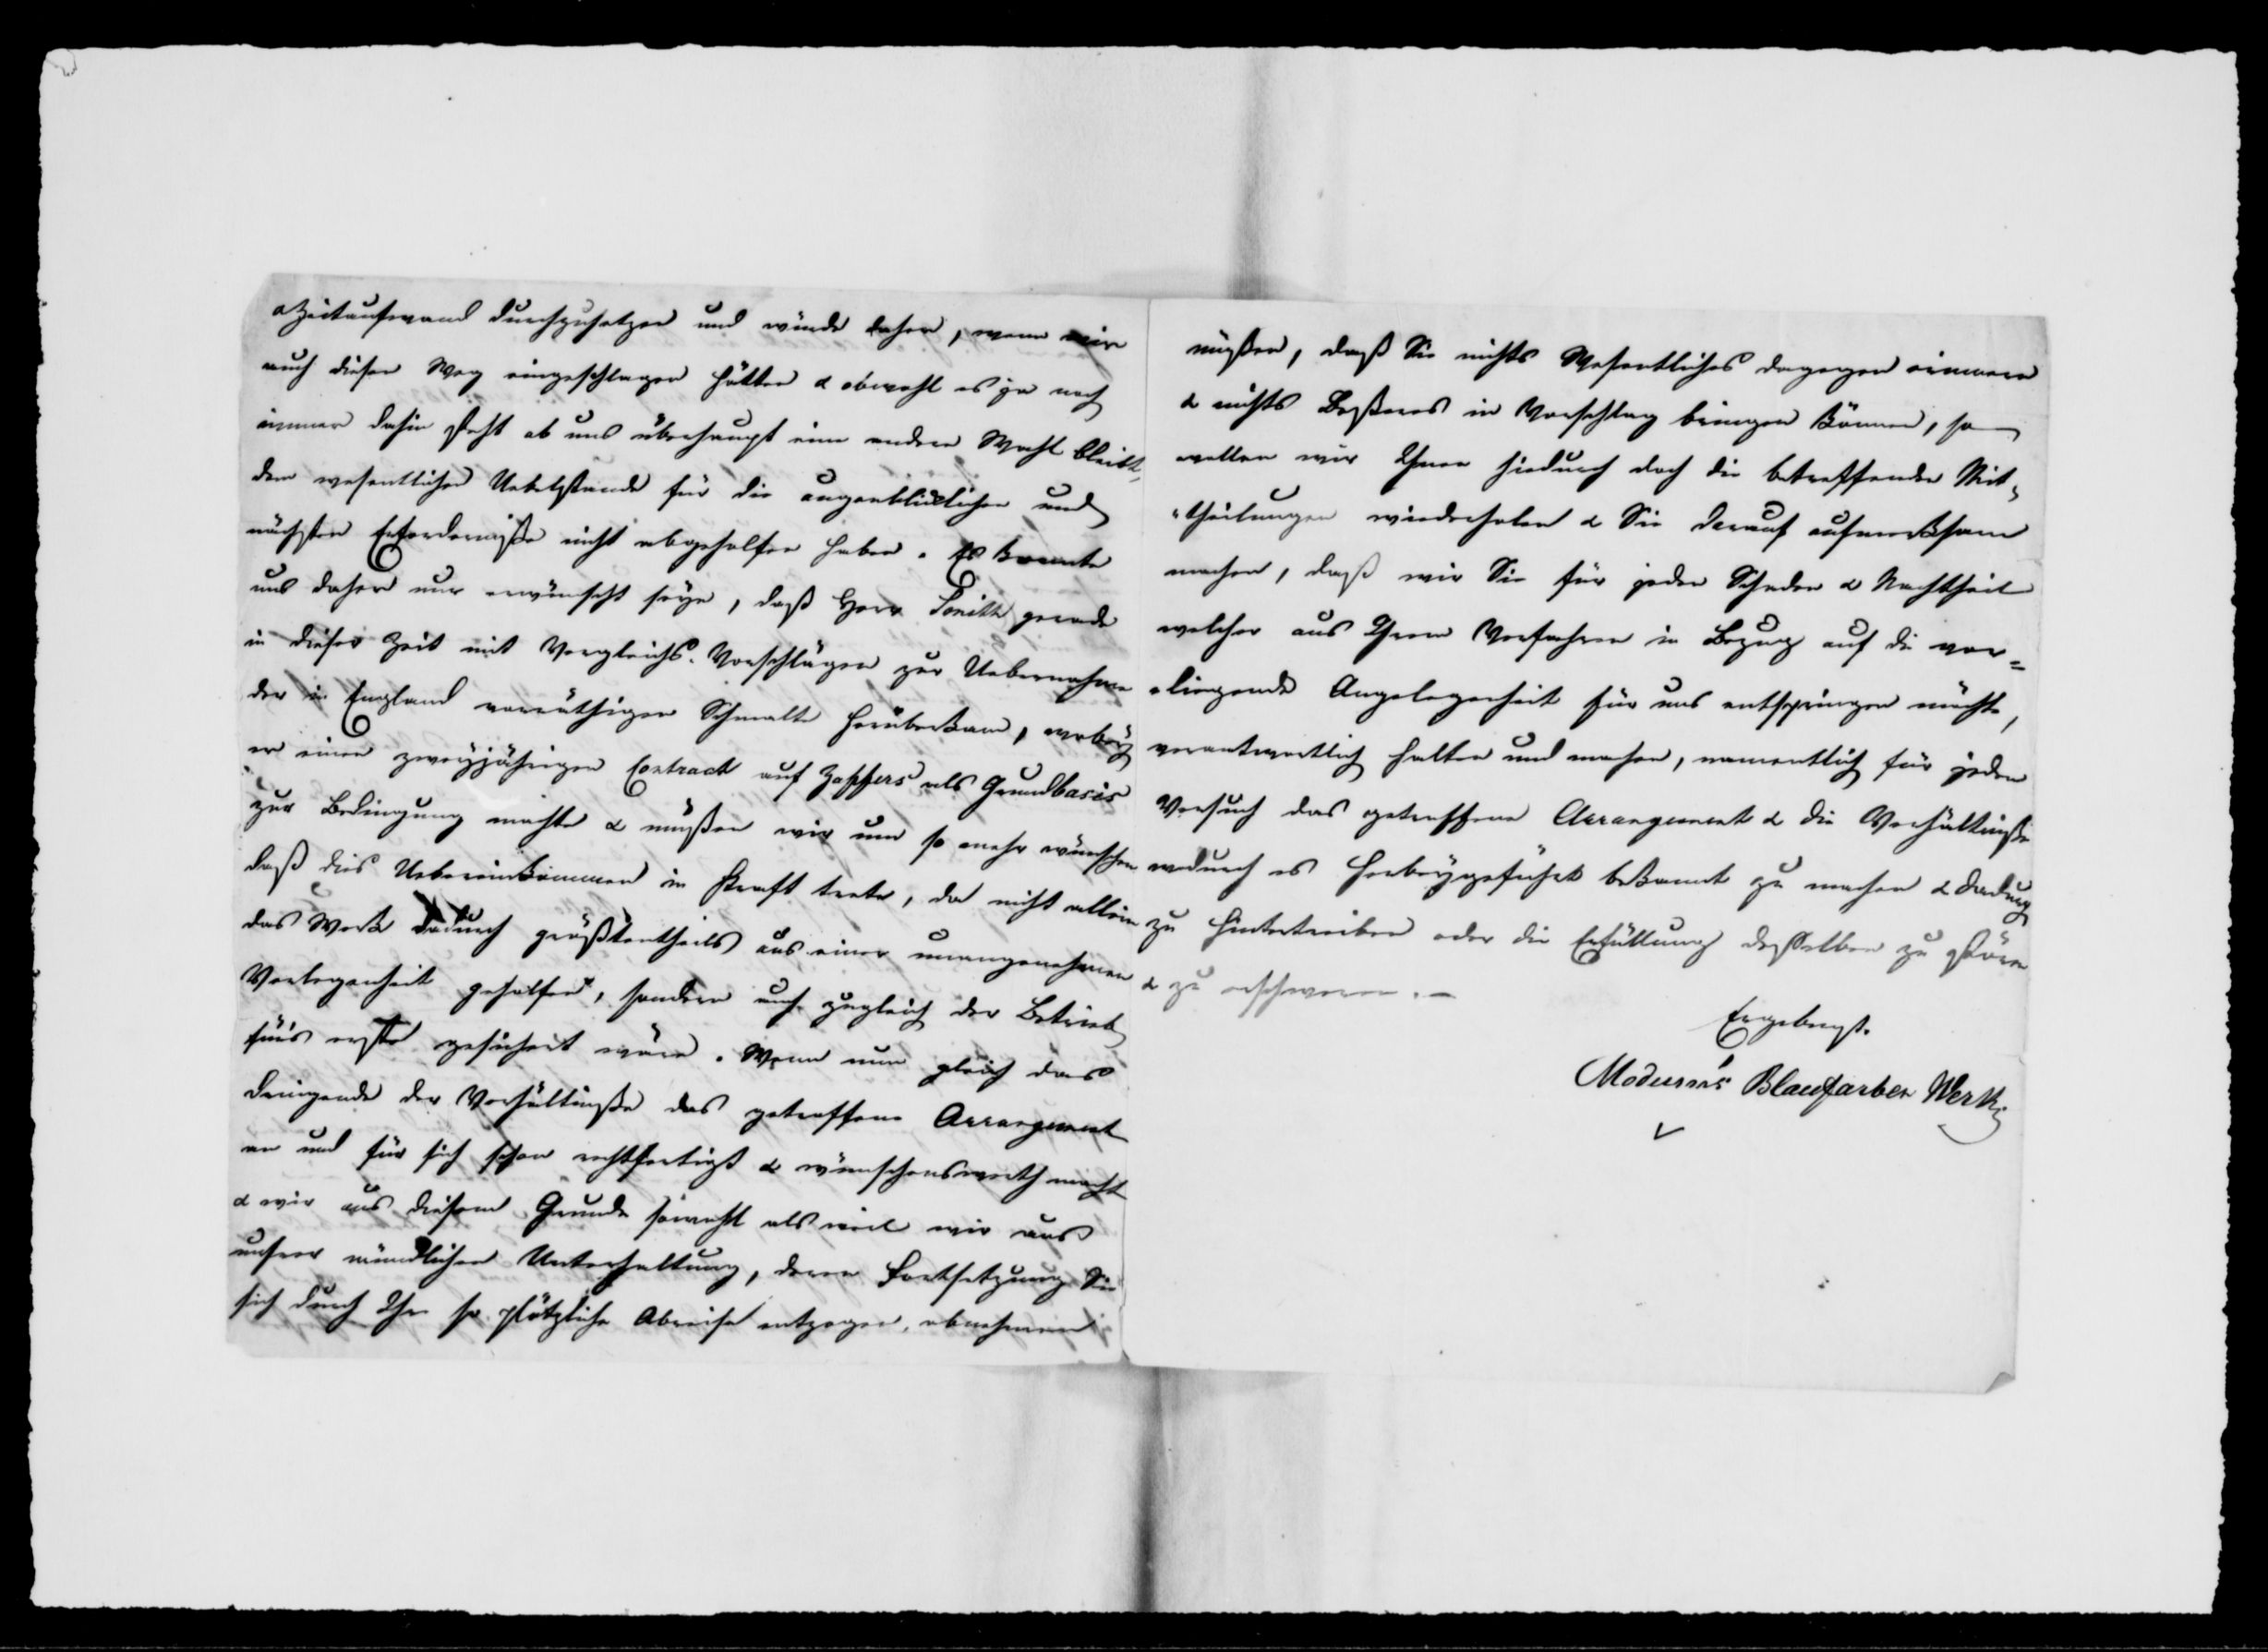 & Zeitaufwand durchzusetzen und würde daher, wenn wir
auch diesen Weg eingeschlagen hätten & obwohl es ja noch
immer dahin steht ob uns überhaupt eine andere Wahl bleibt,
dem wesentlichen Uebelstande für die augenblicklichen und
nächsten Erforderniße nicht abgeholfen haben. Es konnte
uns daher nur erwünscht seyn, daß Herr gerade
in dieser Zeit mit Vergleichs-Vorschlägen zur Uebernahme
der in England vorräthigen Schmalte herüberkam, wobey
er einen zweyjährigen Contract auf Zaffers als Grundbasis
zur Bedingung machte & müßen wir um so mehr wünschen
daß dies Uebereinkommen in Kraft trete, da nicht allein
das Werk dadurch größtentheils aus einer unangenehmen
Verlegenheit geholfen, sondern auch zugleich der Betrieb
für's erste gesichert wäre. Wenn nun gleich das
Dringende der Verhältniße das getroffene Arrangement
an und für sich schon rechtfertigt & wünschenswerth macht
& wir aus diesem Grunde sowohl als weil wir aus
unsrer mündlichen Unterhaltung, deren Fortsetzung Sie
sich durch Ihre so plötzliche Abreise entzogen, abnehmen
müßen, daß Sie nichts Wesentliches dagegen erinnern
& nichts Beßeres in Vorschlag bringen können, so
wollen wir Ihnen hiedurch doch die betreffenden Mit-
-theilungen wiederholen & Sie darauf aufmerksam
machen, daß wir Sie für jeden Schaden & Nachtheil
welcher aus Ihrem Verfahren in Bezug auf die vor=
=liegende Angelegenheit für uns entspringen möchte,
verantwortlich halten und machen, namentlich für jeden
Versuch das getroffene Arrangement & die Verhältniße
wodurch es herbeygeführt bekannt zu machen & dadurch
zu hintertreiben oder die Erfüllung desselben zu stören
& zu erschweren. —
Ergebenst.
Modum's Blaufarben Werk